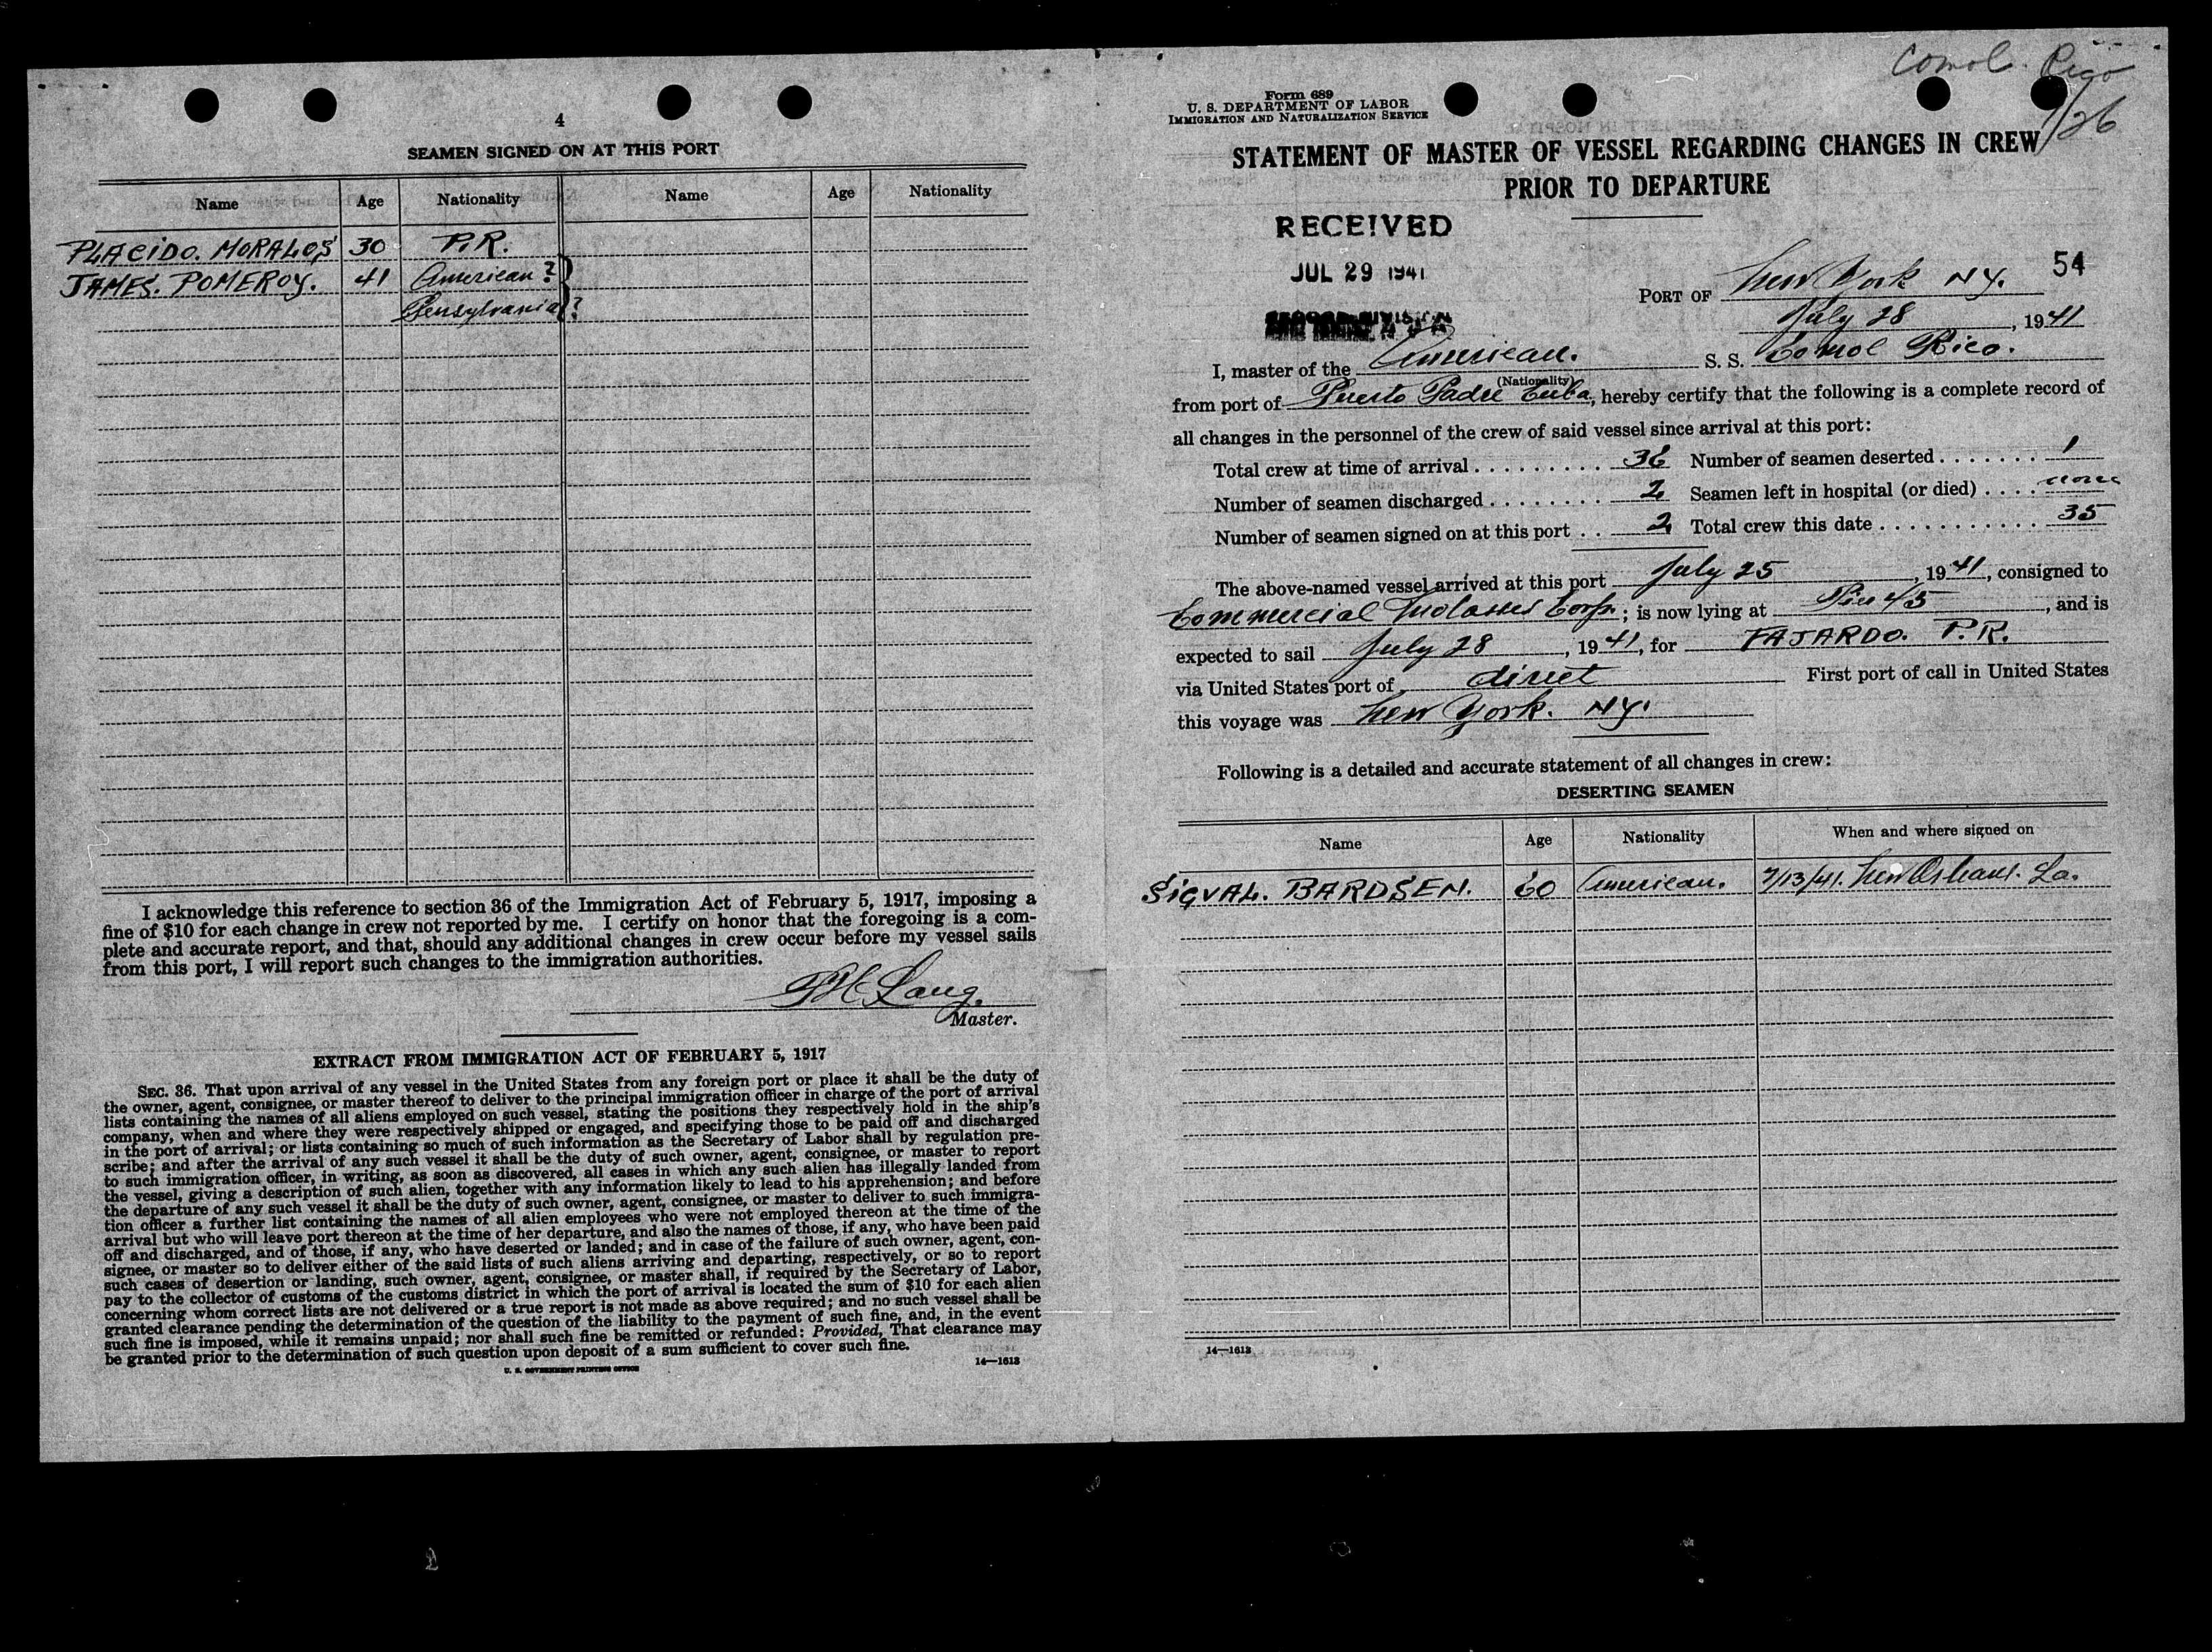 4
SEAMEN SIGNED ON AT THIS PORT
Name Age Nationality Name Age Nationality
PLACIDO. MORALOS 30 P.R.
JAMES. POMEROY. 41 American ?
Pensylvania ?
I acknowledge this reference to section 36 of the Immigration Act of February 5, 1917, imposing a
fine of $10 for each change in crew not reported by me. I certify on honor that the foregoing is a com-
plete and accurate report, and that, should any additional changes in crew occur before my vessel sails
from this port, I will report such changes to the immigration authorities.
Lang.
Master.
EXTRACT FROM IMMIGRATION ACT OF FEBRUARY 5, 1917
SEC. 36. That upon arrival of any vessel in the United States from any foreign port or place it shall be the duty of
the owner, agent, consignee, or master thereof to deliver to the principal immigration officer in charge of the port of arrival
lists containing the names of all aliens employed on such vessel, stating the positions they respectively hold in the ship's
company, when and where they were respectively shipped or engaged, and specifying those to be paid off and discharged
in the port of arrival; or lists containing so much of such information as the Secretary of Labor shall by regulation pre-
scribe; and after the arrival of any such vessel it shall be the duty of such owner, agent, consignee, or master to report
to such immigration officer, in writing, as soon as discovered, all cases in which any such alien has illegally landed from
the vessel, giving a description of such alien, together with any information likely to lead to his apprehension; and before
the departure of any such vessel it shall be the duty of such owner, agent, consignee, or master to deliver to such immigra-
tion officer a further list containing the names of all alien employees who were not employed thereon at the time of the
arrival but who will leave port thereon at the time of her departure, and also the names of those, if any, who have been paid
off and discharged, and of those, if any, who have deserted or landed; and in case of the failure of such owner, agent, con-
signee, or master so to deliver either of the said lists of such aliens arriving and departing, respectively, or so to report
such cases of desertion or landing, such owner, agent, consignee, or master shall, if required by the Secretary of Labor,
pay to the collector of customs of the customs district in which the port of arrival is located the sum of $10 for each alien
concerning whom correct lists are not delivered or a true report is not made as above required; and no such vessel shall be
granted clearance pending the determination of the question of the liability to the payment of such fine, and, in the event
such fine is imposed, while it remains unpaid; nor shall such fine be remitted or refunded: Provided, That clearance may
be granted prior to the determination of such question upon deposit of a sum sufficient to cover such fine.
U. S. GOVERNMENT PRINTING OFFICE 14—1613
Comol. Rico
7/26
Form 689
U. S. DEPARTMENT OF LABOR
IMMIGRATION AND NATURALIZATION SERVICE
STATEMENT OF MASTER OF VESSEL REGARDING CHANGES IN CREW
PRIOR TO DEPARTURE
RECEIVED
JUL 29 1941
54
PORT OF New York NY.
July 28, 1941
I, master of the American. S. S. Comol Rico.
(Nationality)
from port of Puerto Padre Cuba, hereby certify that the following is a complete record of
all changes in the personnel of the crew of said vessel since arrival at this port:
Total crew at time of arrival . . . . . . . . . 36 Number of seamen deserted . . . . . . . 1
Number of seamen discharged . . . . . . . . 2 Seamen left in hospital (or died) . . . . none
Number of seamen signed on at this port . . 2 Total crew this date . . . . . . . . . . . . 35
The above-named vessel arrived at this port July 25, 1941, consigned to
Commercial Molasses Corp.; is now lying at Pier 45, and is
expected to sail July 28, 1941, for FAJARDO. P.R.
via United States port of direct First port of call in United States
this voyage was New York. NY.
Following is a detailed and accurate statement of all changes in crew:
DESERTING SEAMEN
Name Age Nationality When and where signed on
SIGVAL. BARDSEN. 60 American. 7/13/41. New Orleans. La.
14—1613